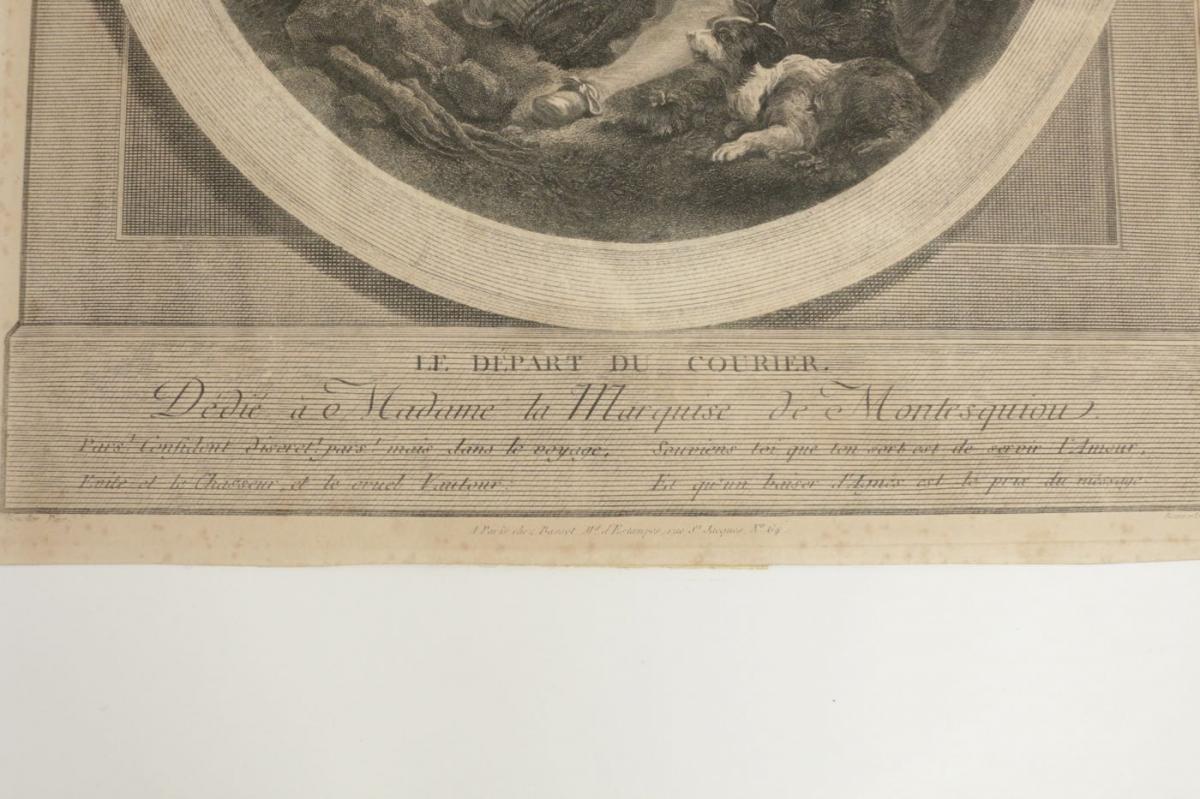 LE DÉPART DU COURIER.
Dédié à Madame la Marquise de Montesquiou.
Pars! Confident discret! pars! mais dans le voyage, Souviens toi que ton sort est de servir l'Amour,
Evite et le Chasseur, et le cruel Vautour; Et qu'un baiser d'Agnès est le prix du message
A Paris chez Basset Md. d'Estampes, rue St. Jacques, No. 64